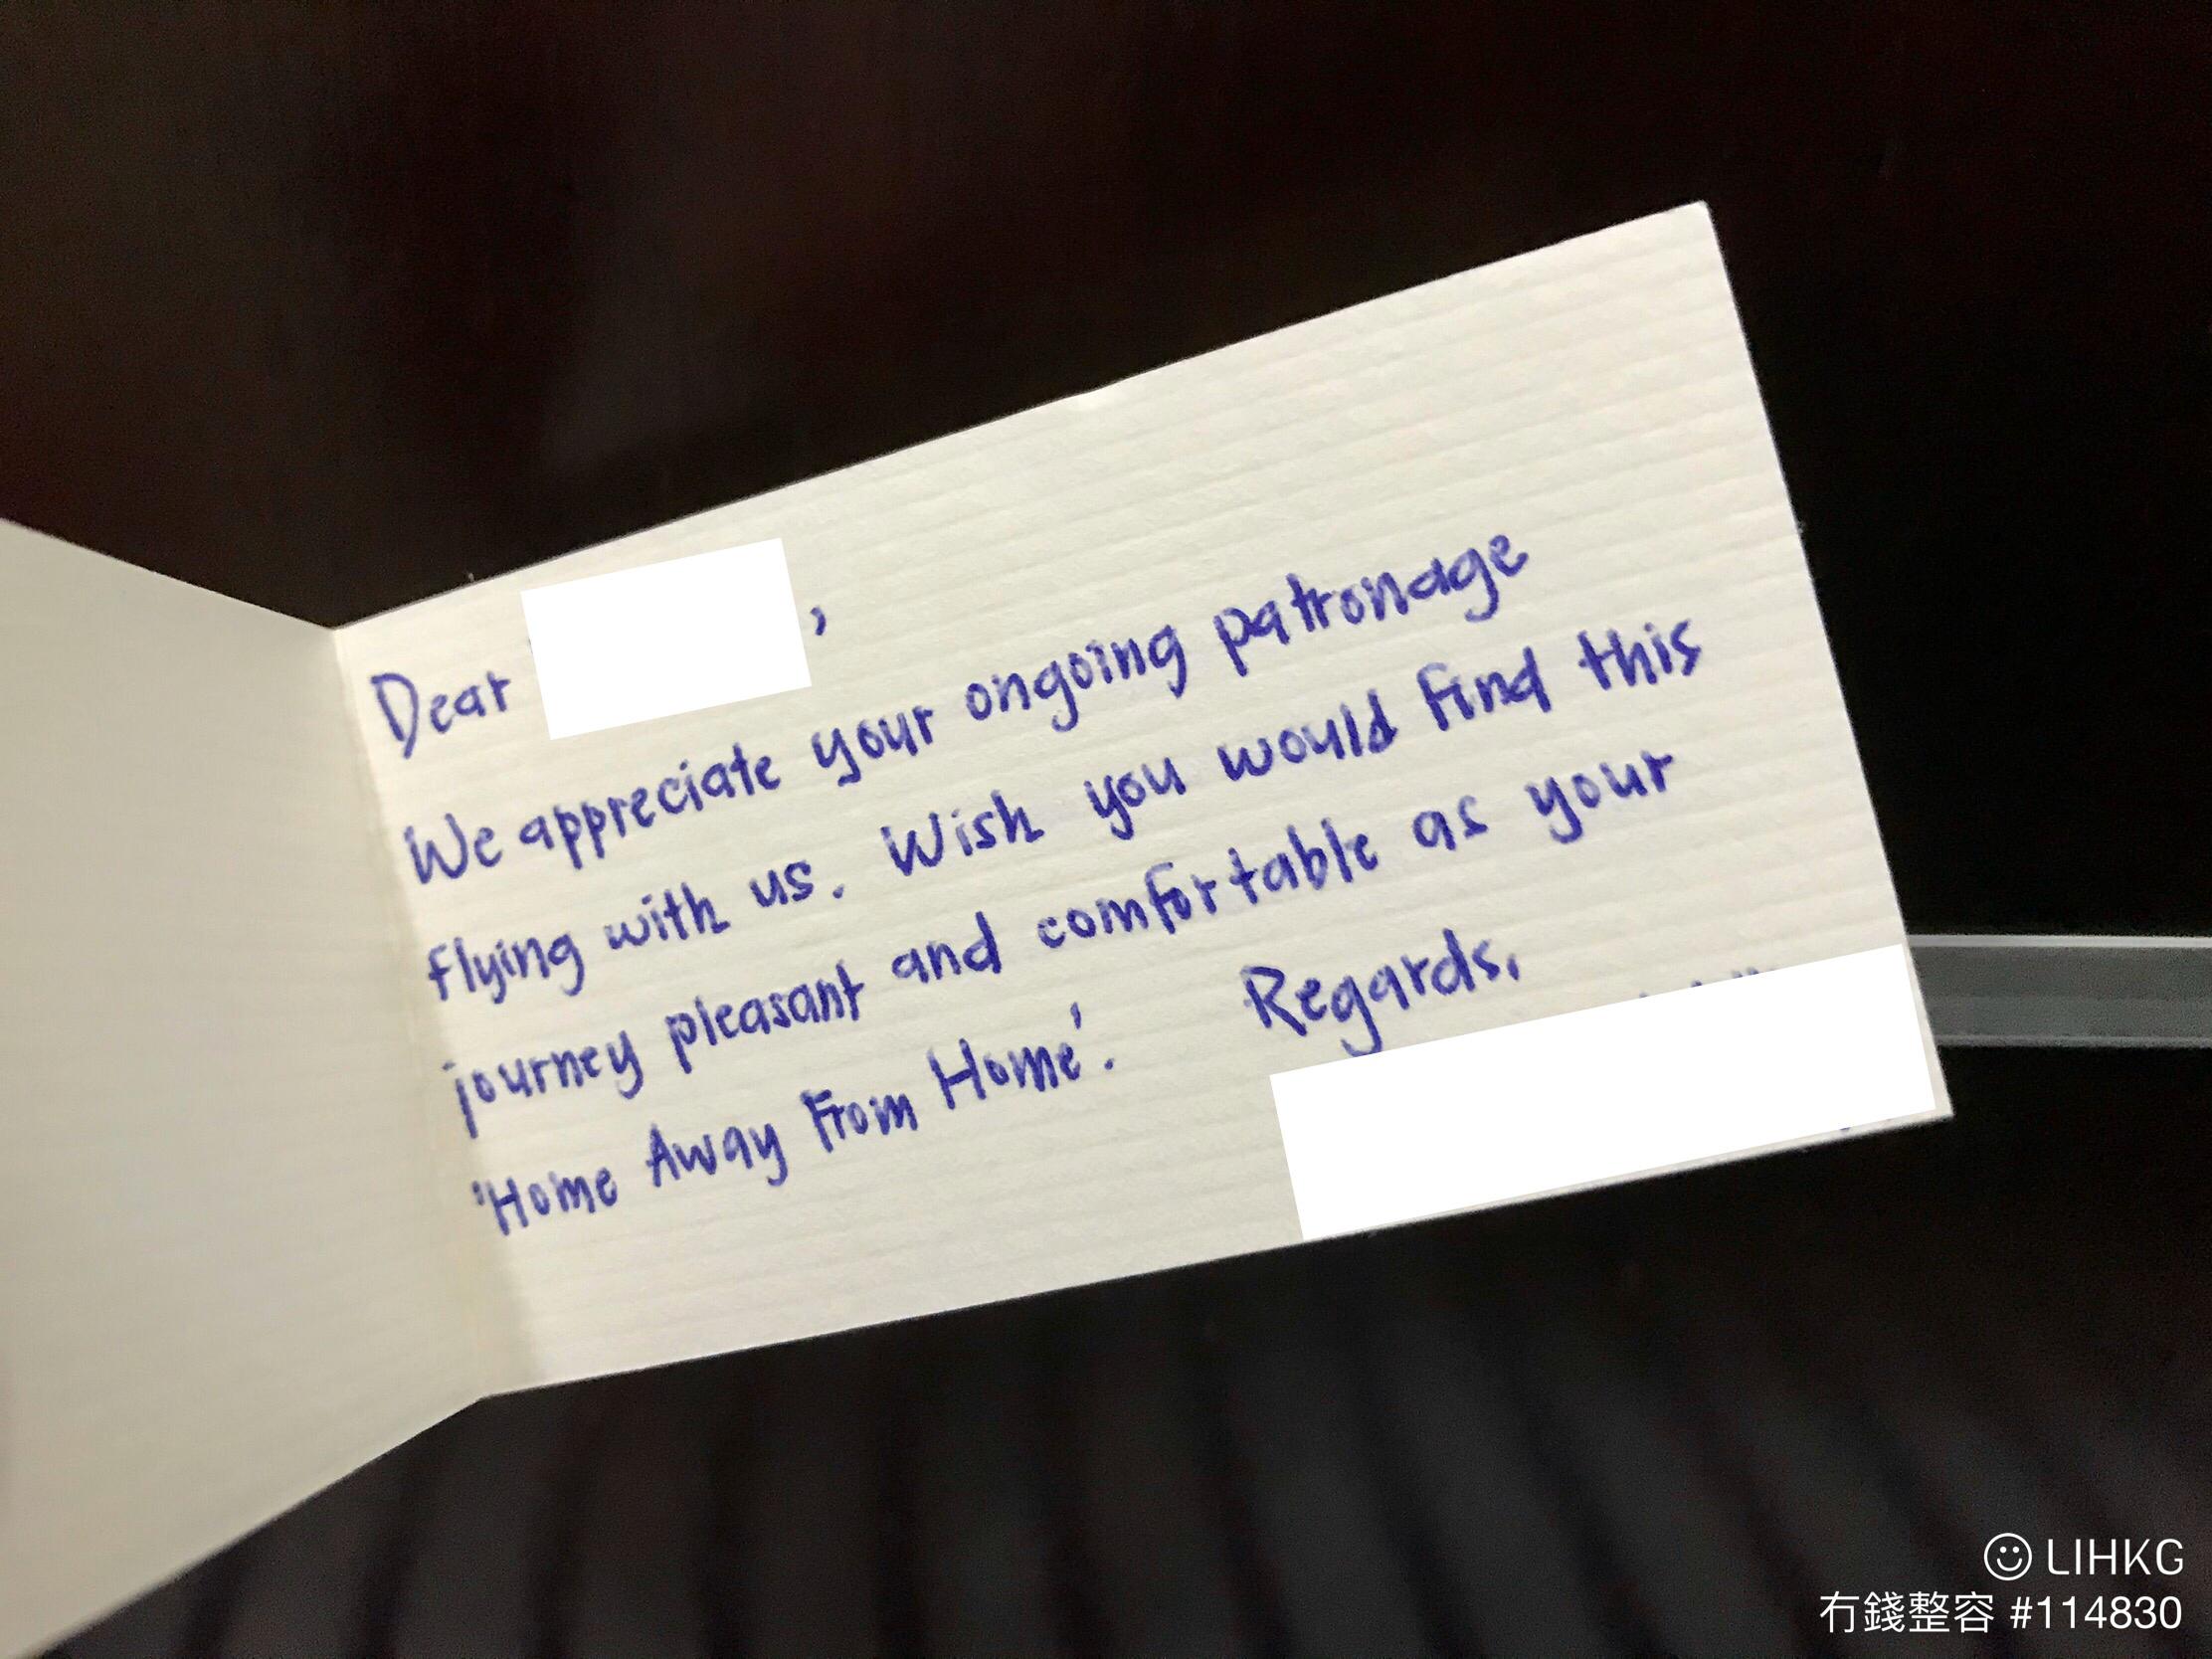 Dear ,
We appreciate your ongoing patronage
flying with us. Wish you would find this
journey pleasant and comfortable as your
'Home Away From Home'.
Regards,
LIHKG
冇錢整容 #114830